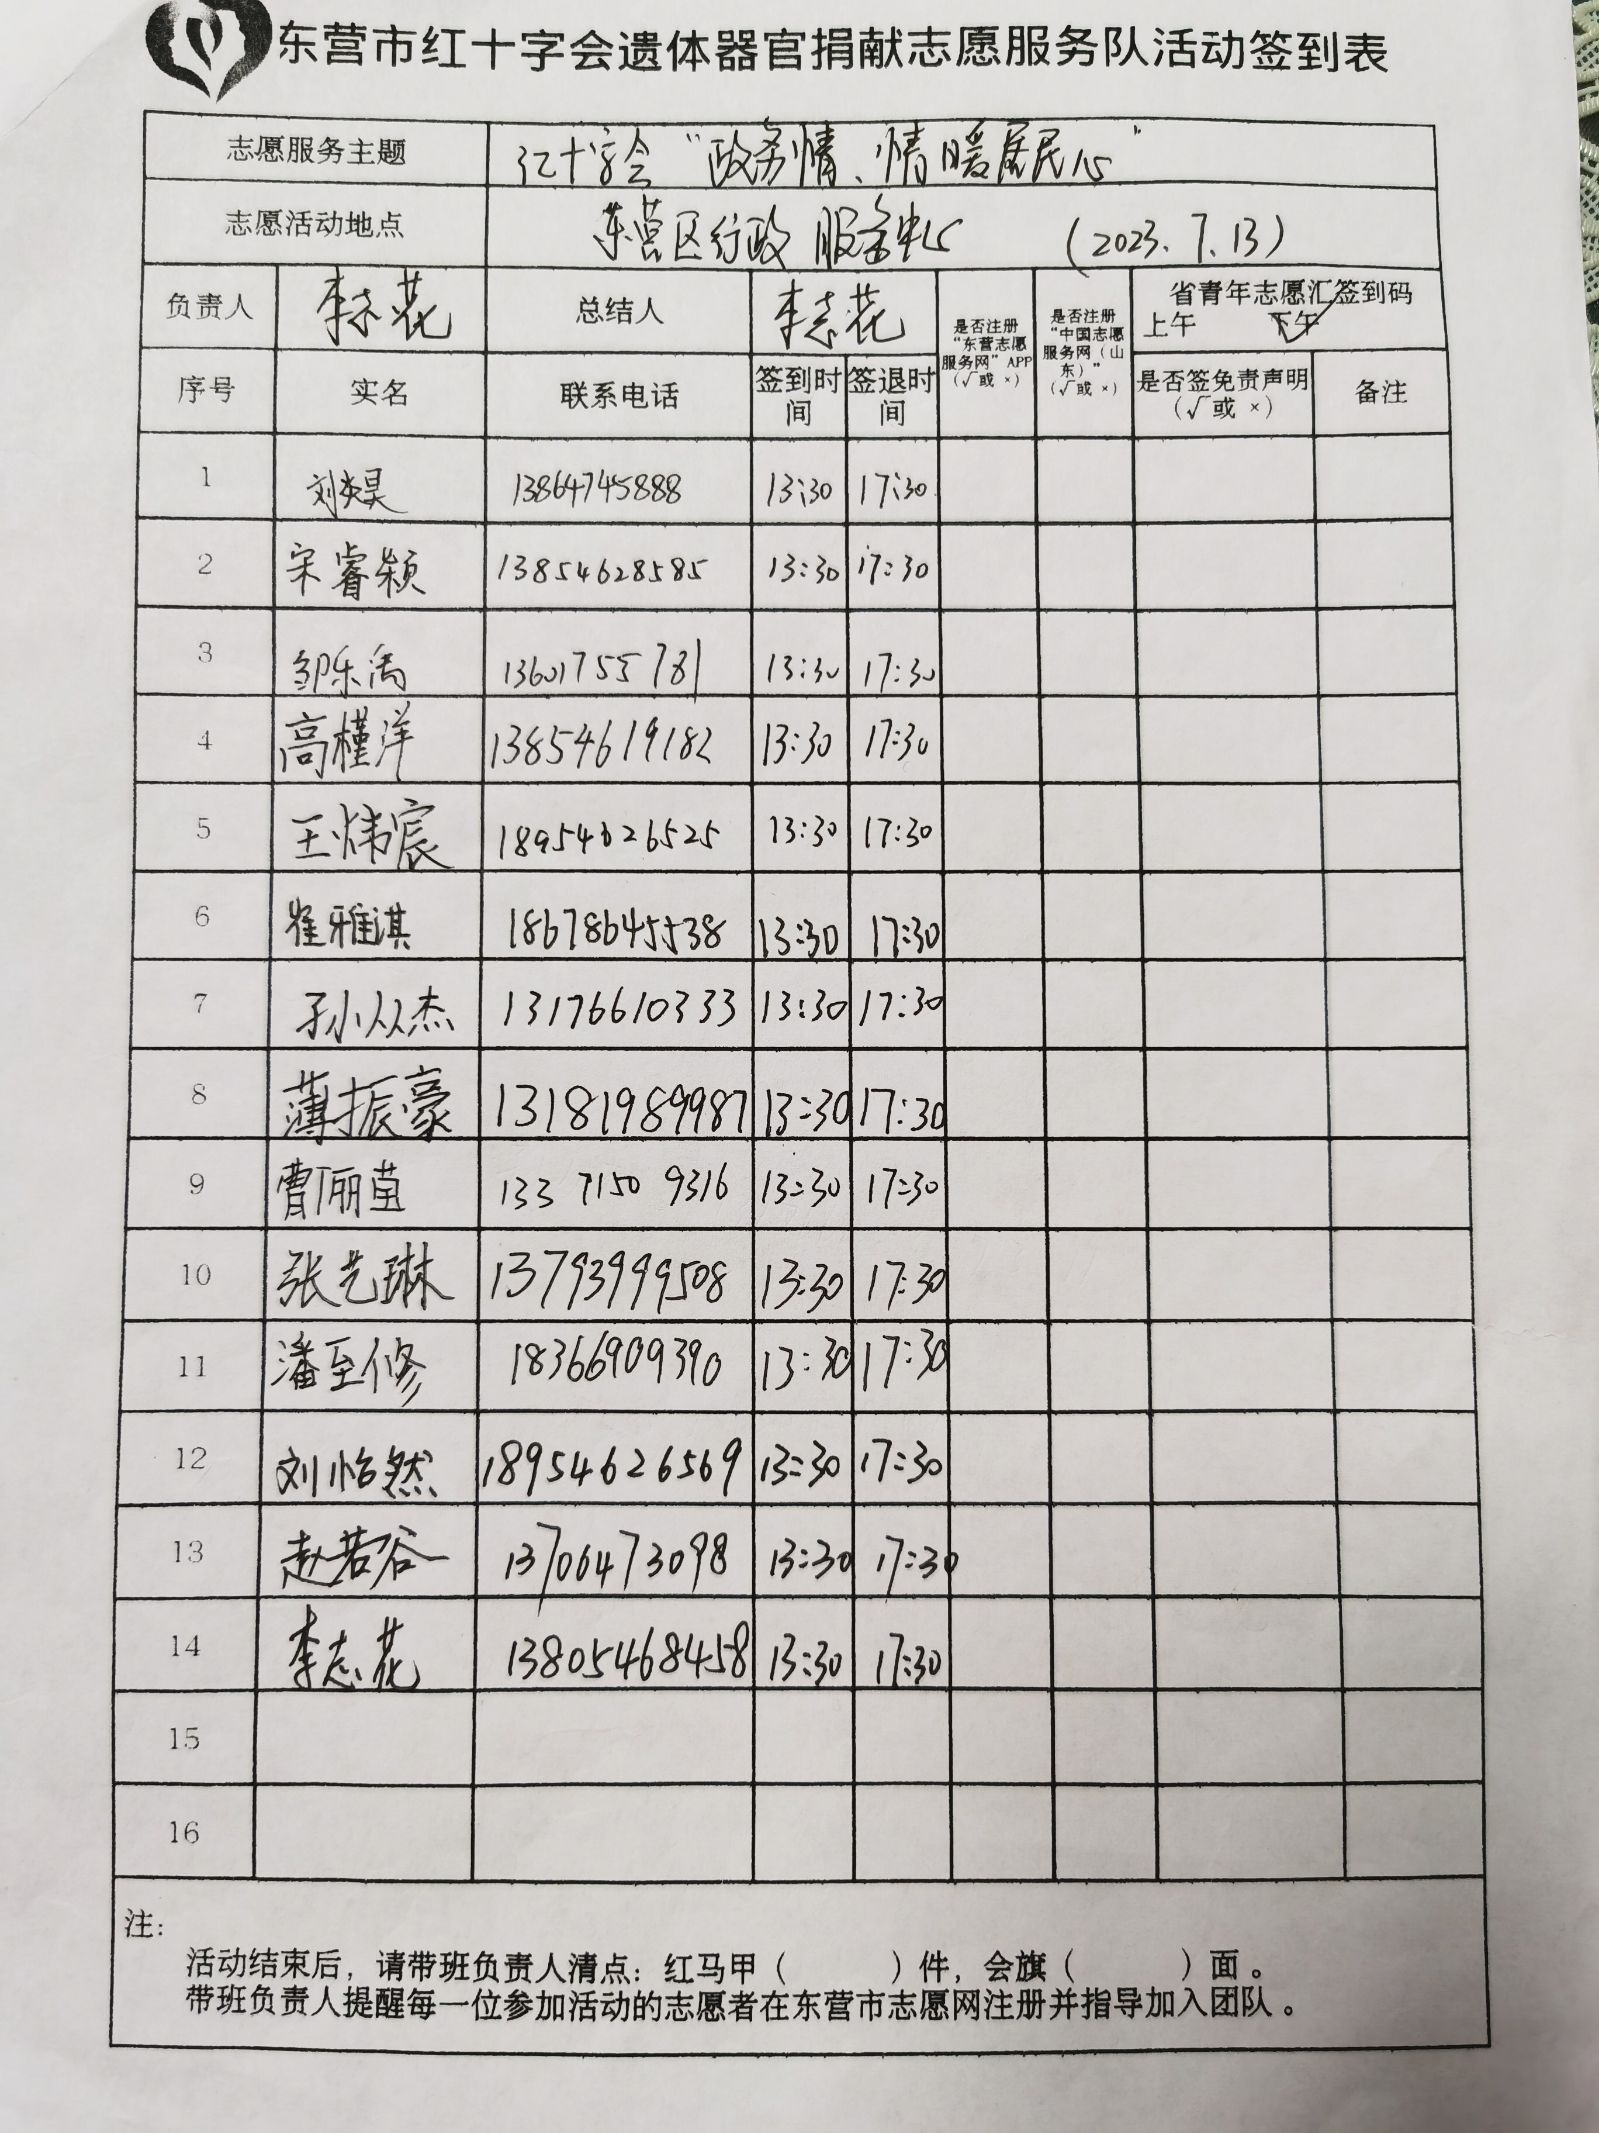 东营市红十字会遗体器官捐献志愿服务队活动签到表
志愿服务主题 红十字会“政务情、情暖居民心”
志愿活动地点 东营区行政服务中心 (2023.7.13)
负责人 李志花 总结人 李志花 是否注册“东营志愿服务网”APP(√或 ×) 是否注册“中国志愿服务网(山东)”(√或 ×) 省青年志愿汇签到码 上午 下午 ✓
序号 实名 联系电话 签到时间 签退时间 是否签免责声明(√或 ×) 备注
1 刘炎昊 13864745888 13:30 17:30
2 宋睿颖 13854628585 13:30 17:30
3 邹乐禹 13601755781 13:30 17:30
4 高槿洋 13854619182 13:30 17:30
5 王炜宸 18954626525 13:30 17:30
6 崔雅淇 18678645538 13:30 17:30
7 孙从杰 13176610333 13:30 17:30
8 薄振豪 13181989987 13:30 17:30
9 曹俪茧 133 7150 9316 13:30 17:30
10 张艺琳 13793999508 13:30 17:30
11 潘至修 18366909390 13:30 17:30
12 刘怡然 18954626569 13:30 17:30
13 赵若谷 13706473098 13:30 17:30
14 李志花 13805468458 13:30 17:30
15
16
注:
活动结束后,请带班负责人清点:红马甲( )件,会旗( )面。
带班负责人提醒每一位参加活动的志愿者在东营市志愿网注册并指导加入团队。